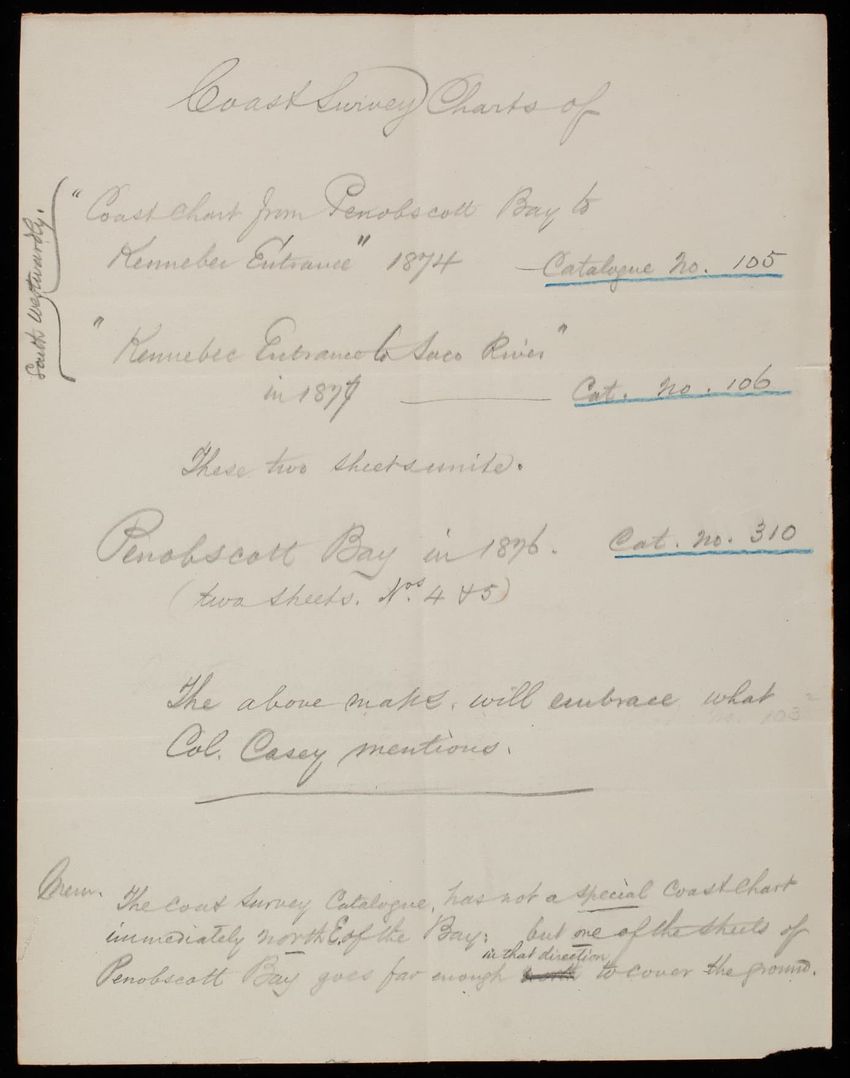 Coast Survey Charts of
South Westwardly.
"Coast Chart from Penobscott Bay to
Kennebec Entrance" 1874 — Catalogue No. 105
"Kennebec Entrance to Saco River"
in 187 — Cat. No. 106
These two sheets unite.
Penobscott Bay in 1876. Cat. No. 310
(two sheets. Nos. 4 & 5)
The above maps, will embrace what
Col. Casey mentions.
Mem. The Coast Survey Catalogue, has not a special Coast Chart
immediately north E. of the Bay; but one of the sheets of
in that direction
Penobscott Bay goes far enough to cover the ground.